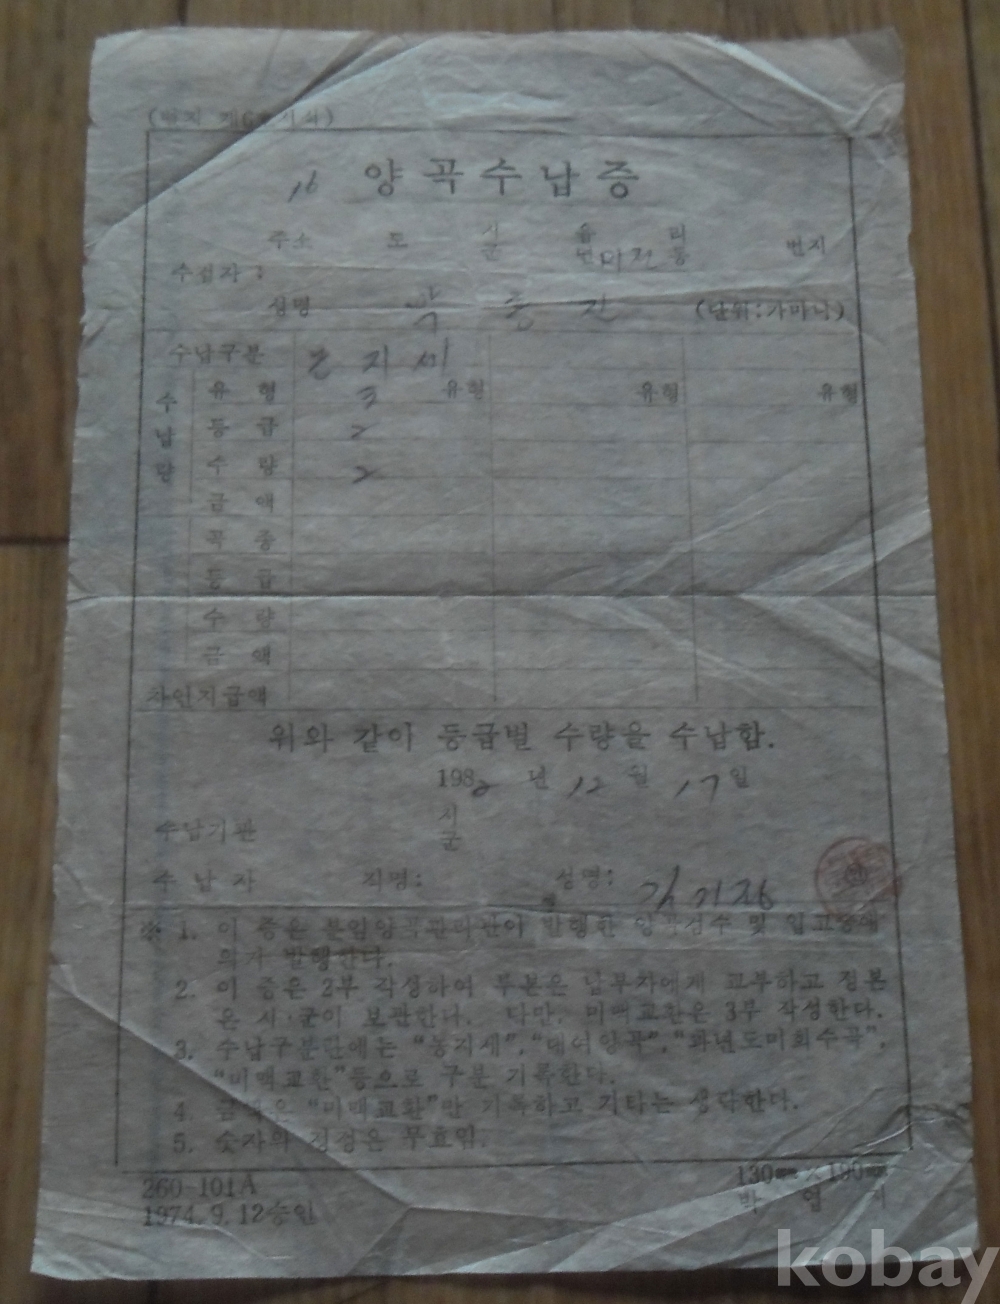 (별지 제6호서식)
16 양곡수납증
주소 도 시군 읍면 리동 번지
미전
수검자 :
성명 박 동 진 (단위:가마니)
수납구분 농 지 세
수납량 유 형 3 유형 유형 유형
등 급 2
수 량 2
금 액
곡 종
등 급
수 량
금 액
차인지급액
위와 같이 등급별 수량을 수납함.
1982 년 12 월 17 일
수납기관 시군
수 납 자 직명: 성명:
※ 1. 이 증은 분임양곡관리관이 발행한 양곡검수 및 입고증에
의거 발행한다.
2. 이 증은 2부 작성하여 부본은 납부자에게 교부하고 정본
은 시·군이 보관한다. 다만, 미맥교환은 3부 작성한다.
3. 수납구분란에는 "농지세", "대여양곡", "과년도미회수곡",
"미맥교환"등으로 구분 기록한다.
4. 금액은 "미맥교환"만 기록하고 기타는 생략한다.
5. 숫자의 정정은 무효임.
260-101A
1974. 9. 12승인
130㎜×190㎜
지
kobay